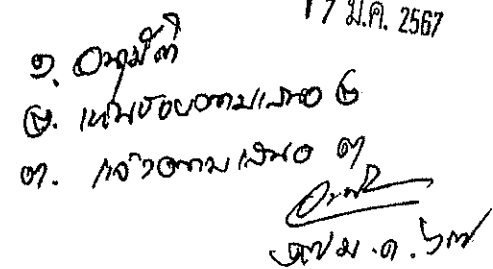 17 ม.ค. 2567
๑. อนุมัติ
๒. เห็นชอบตามเสนอ ๒
๓. แจ้งตามเสนอ ๓
๑๗ ม.ค. ๖๗